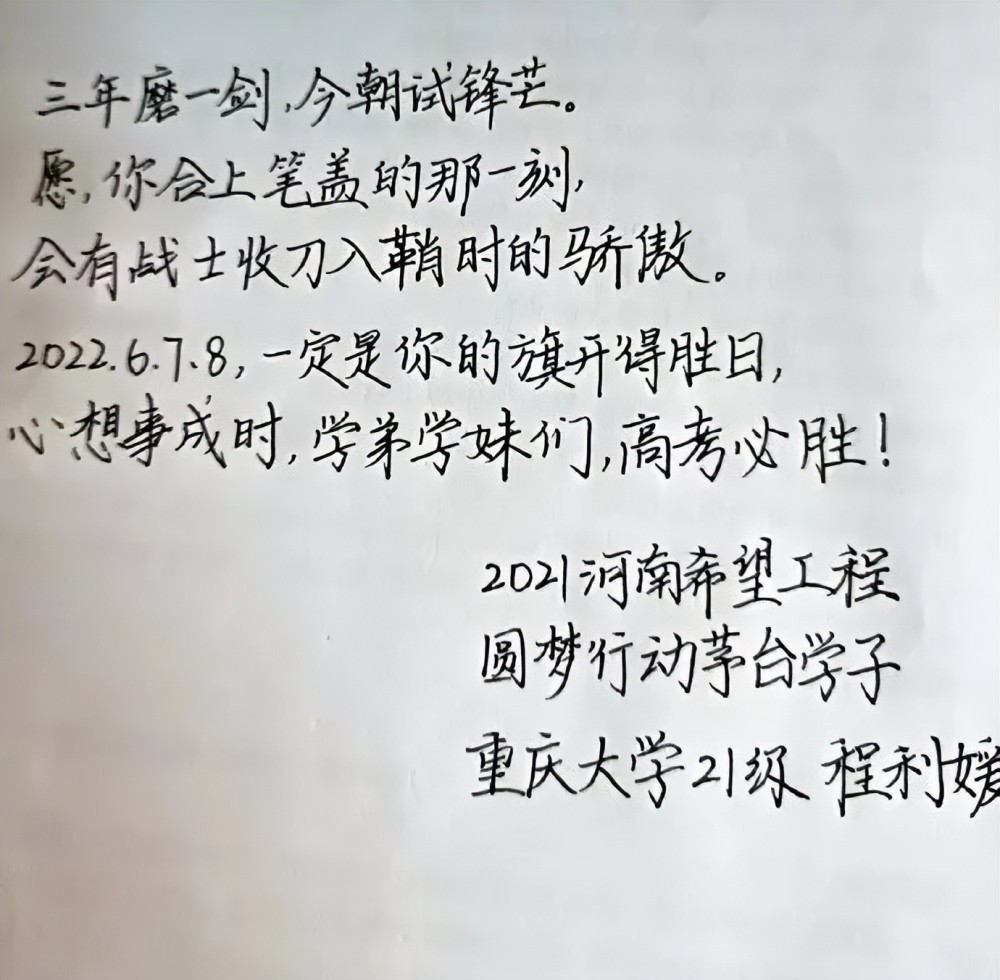 三年磨一剑,今朝试锋芒。
愿,你合上笔盖的那一刻,
会有战士收刀入鞘时的骄傲。
2022.6.7.8,一定是你的旗开得胜日,
心想事成时,学弟学妹们,高考必胜!
2021河南希望工程
圆梦行动茅台学子
重庆大学21级 程利媛